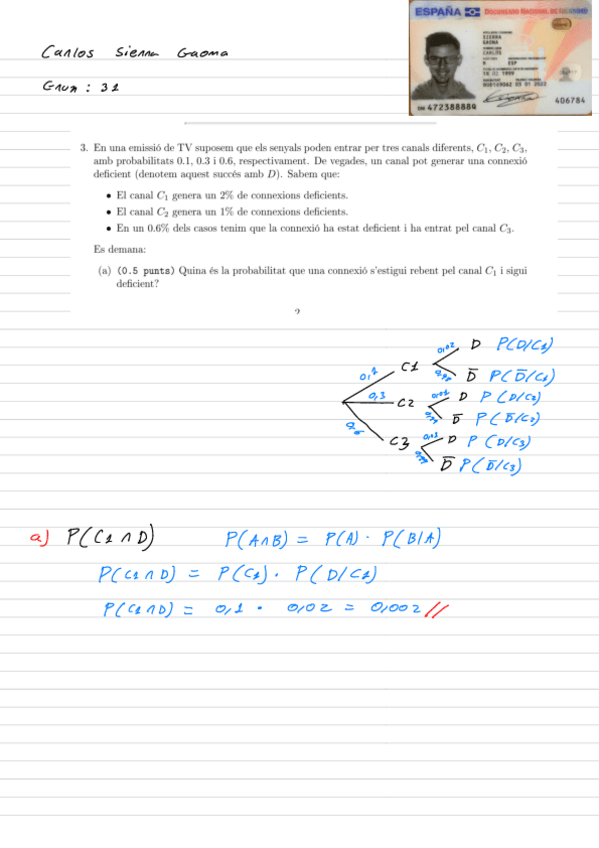 Carlos Sierra Gaona
Grup : 31
ESPAÑA DOCUMENTO NACIONAL DE IDENTIDAD
SIERRA
GAONA
CARLOS
ESP
406784
3. En una emissió de TV suposem que els senyals poden entrar per tres canals diferents, C₁, C₂, C₃,
amb probabilitats 0.1, 0.3 i 0.6, respectivament. De vegades, un canal pot generar una connexió
deficient (denotem aquest succés amb D). Sabem que:
• El canal C₁ genera un 2% de connexions deficients.
• El canal C₂ genera un 1% de connexions deficients.
• En un 0.6% dels casos tenim que la connexió ha estat deficient i ha entrat pel canal C₃.
Es demana:
(a) (0.5 punts) Quina és la probabilitat que una connexió s'estigui rebent pel canal C₁ i sigui
deficient?
0,1 C1 0,02 D P(D/C1)
0,98 D̅ P(D̅/C1)
0,3 C2 0,01 D P(D/C2)
0,99 D̅ P(D̅/C2)
0,6 C3 0,01 D P(D/C3)
0,99 D̅ P(D̅/C3)
a) P(C1 ∩ D) P(A∩B) = P(A) · P(B/A)
P(C1 ∩ D) = P(C1) · P(D/C1)
P(C1 ∩ D) = 0,1 · 0,02 = 0,002 //